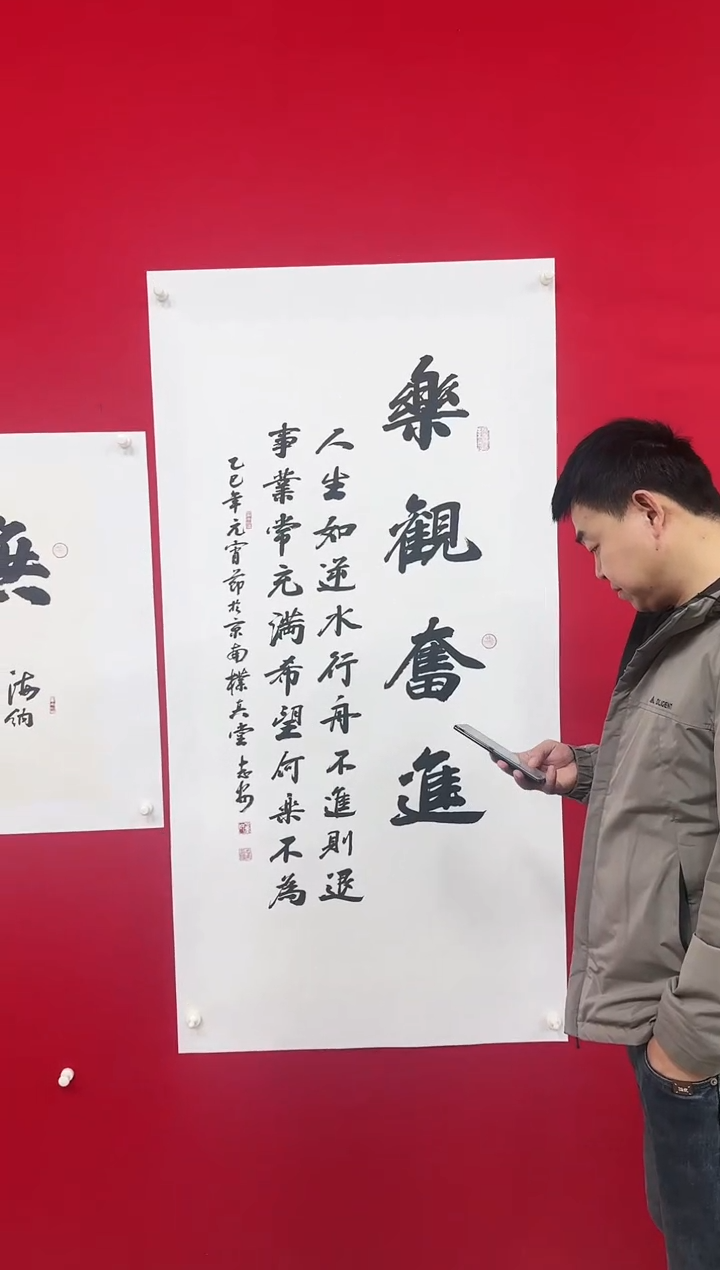 樂觀奮進
人生如逆水行舟不進則退
事業常充滿希望何樂不為
乙巳年元宵節於京南樸真堂志安
無
海納